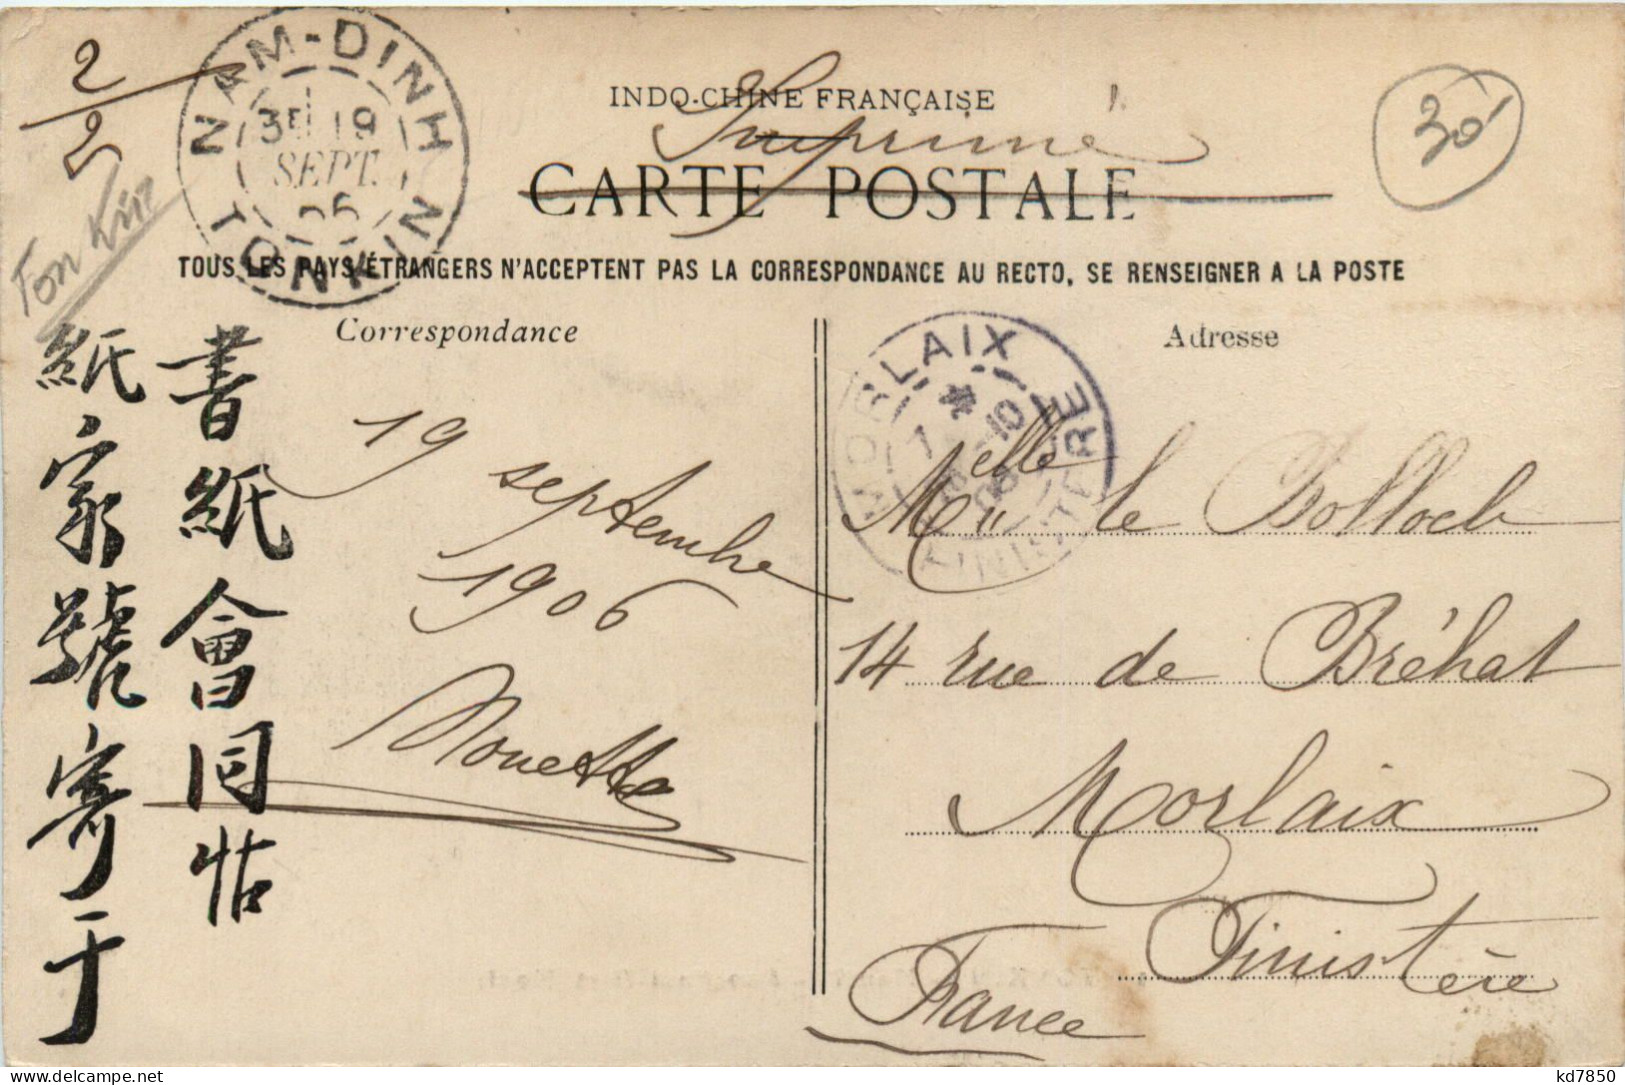 2/2
NAM-DINH
3E 19
SEPT.
06
TONKIN
INDO-CHINE FRANÇAISE
Imprimé
CARTE POSTALE
30
Ton Kin
TOUS LES PAYS ÉTRANGERS N'ACCEPTENT PAS LA CORRESPONDANCE AU RECTO, SE RENSEIGNER A LA POSTE
Correspondance
Adresse
書紙會同帖
紙家號寄于
19 septembre
1906
Nouette
MORLAIX
FINISTERE
Melle le Bolloch
14 rue de Bréhat
Morlaix
Finistère
France
kd7850